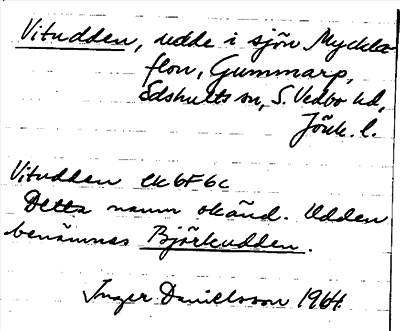 Vitudden, udde i sjön Myckla-
flon, Gummarp,
Edshults sn, S. Vedbo hd,
Jönk. l.
Vitudden ek 6F6c
Detta namn okänd. Udden
benämnes Björkudden.
Inger Danielsson 1964